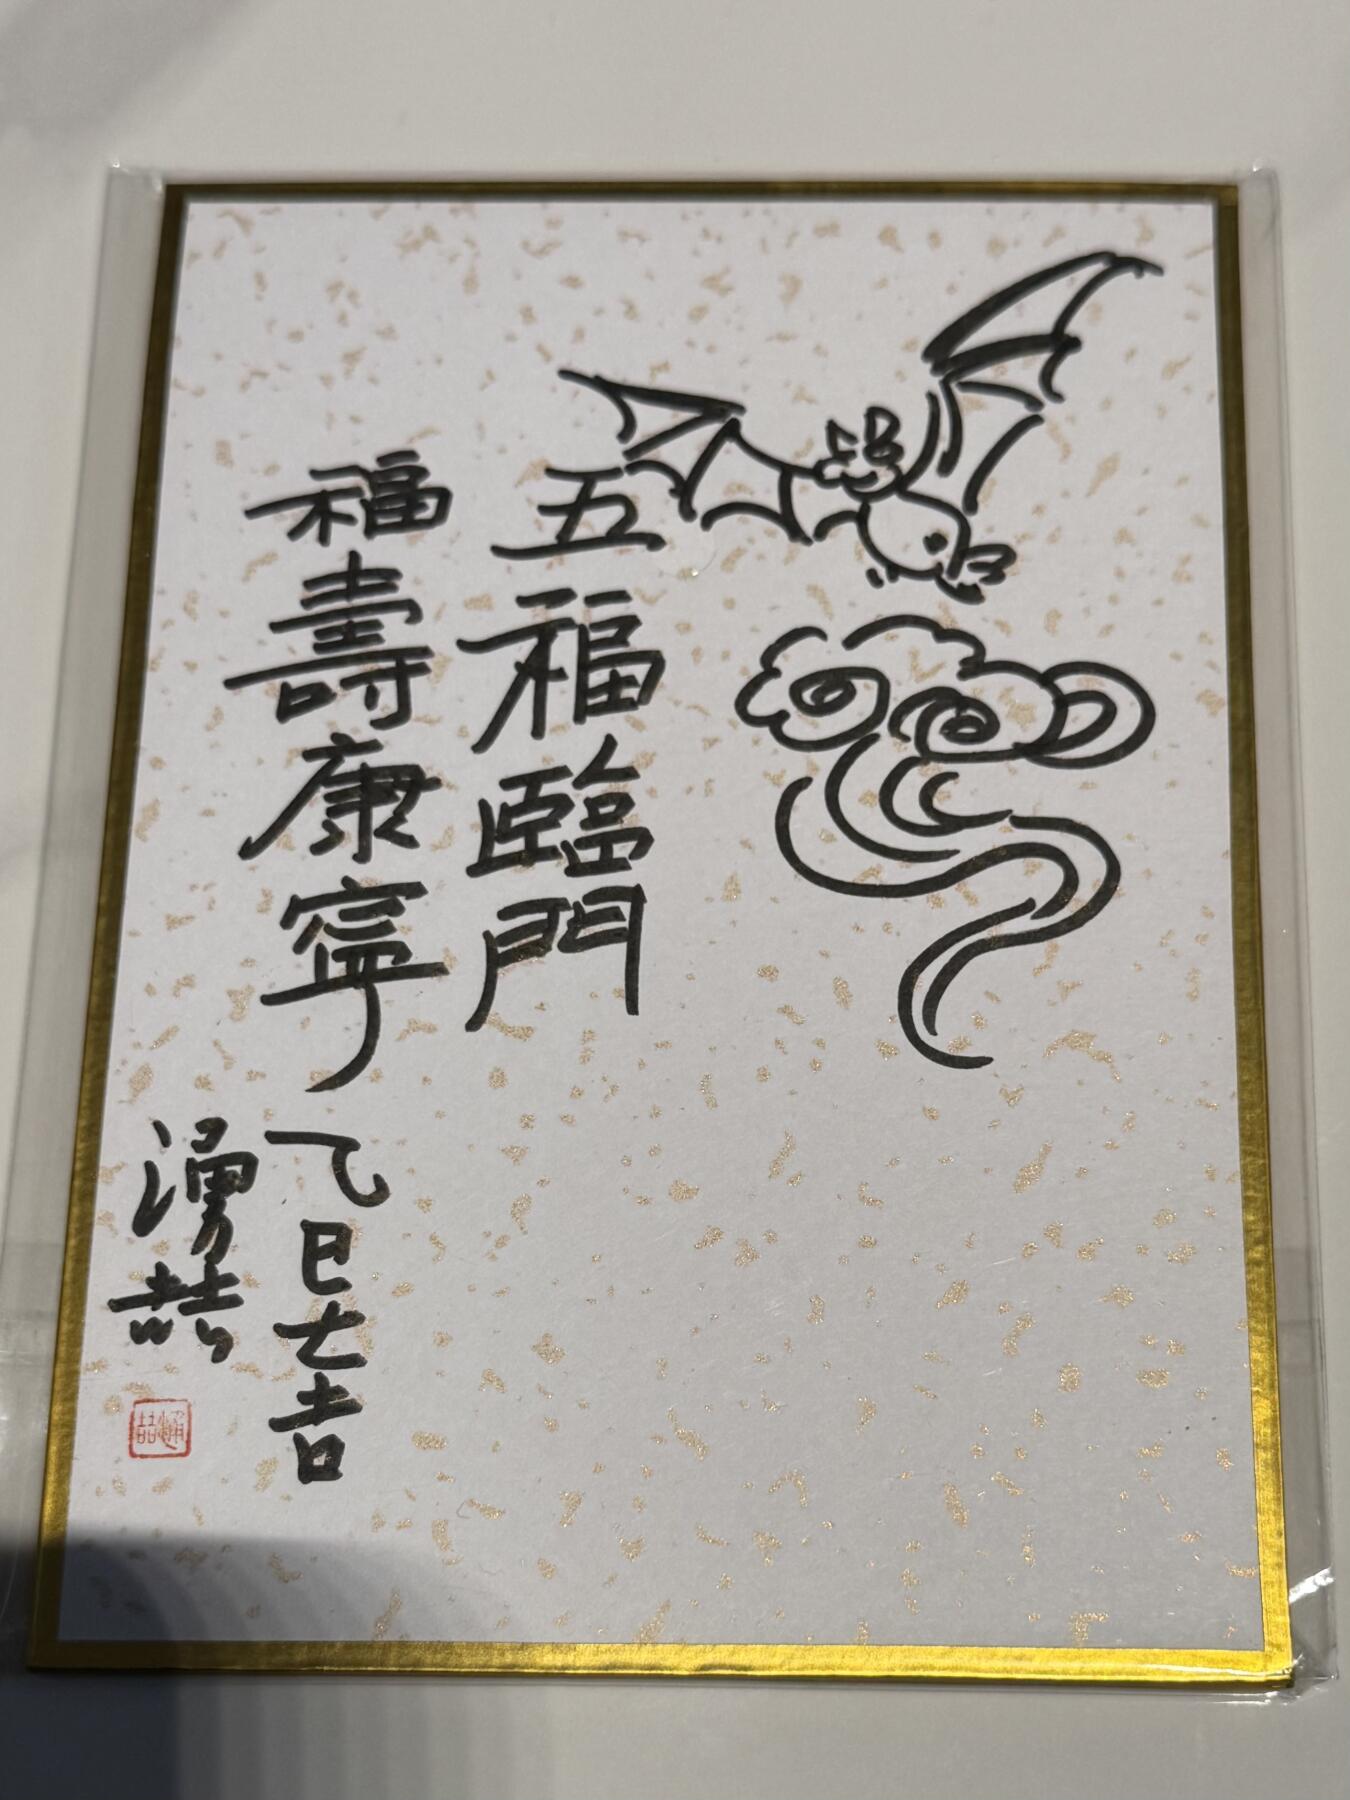 五福臨門
福壽康寧
乙巳大吉
湧喆